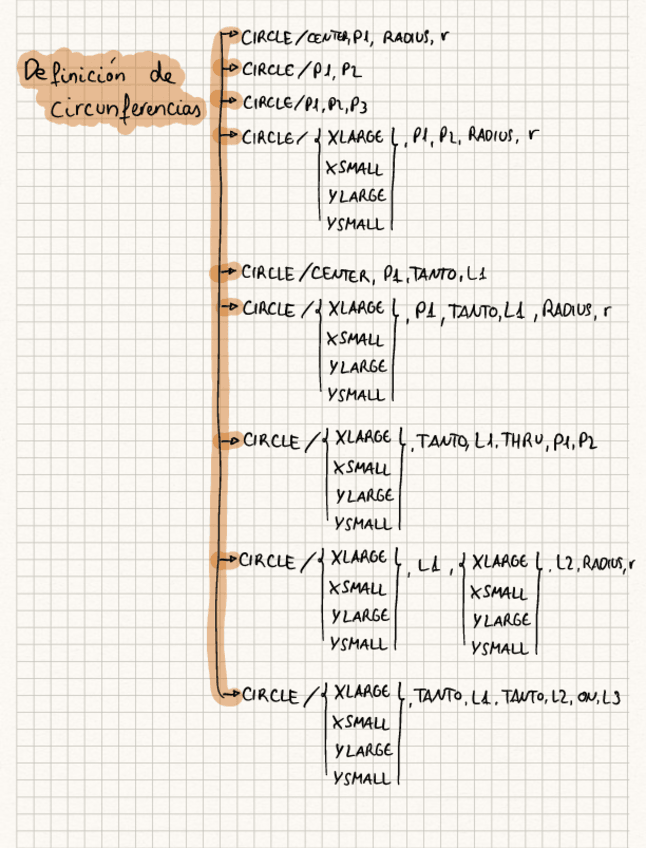 Definición de
circunferencias
CIRCLE/CENTER,P1, RADIUS, r
CIRCLE/P1, P2
CIRCLE/P1,P2,P3
CIRCLE/ { XLARGE {, P1, P2, RADIUS, r
XSMALL
YLARGE
YSMALL
CIRCLE/CENTER, P1,TANTO,L1
CIRCLE/{ XLARGE {, P1,TANTO,L1, RADIUS, r
XSMALL
YLARGE
YSMALL
CIRCLE/{ XLARGE {,TANTO,L1,THRU,P1,P2
XSMALL
YLARGE
YSMALL
CIRCLE/{ XLARGE {, L1, { XLARGE {, L2,RADIUS,r
XSMALL XSMALL
YLARGE YLARGE
YSMALL YSMALL
CIRCLE/{ XLARGE {,TANTO,L1,TANTO,L2,ON,L3
XSMALL
YLARGE
YSMALL